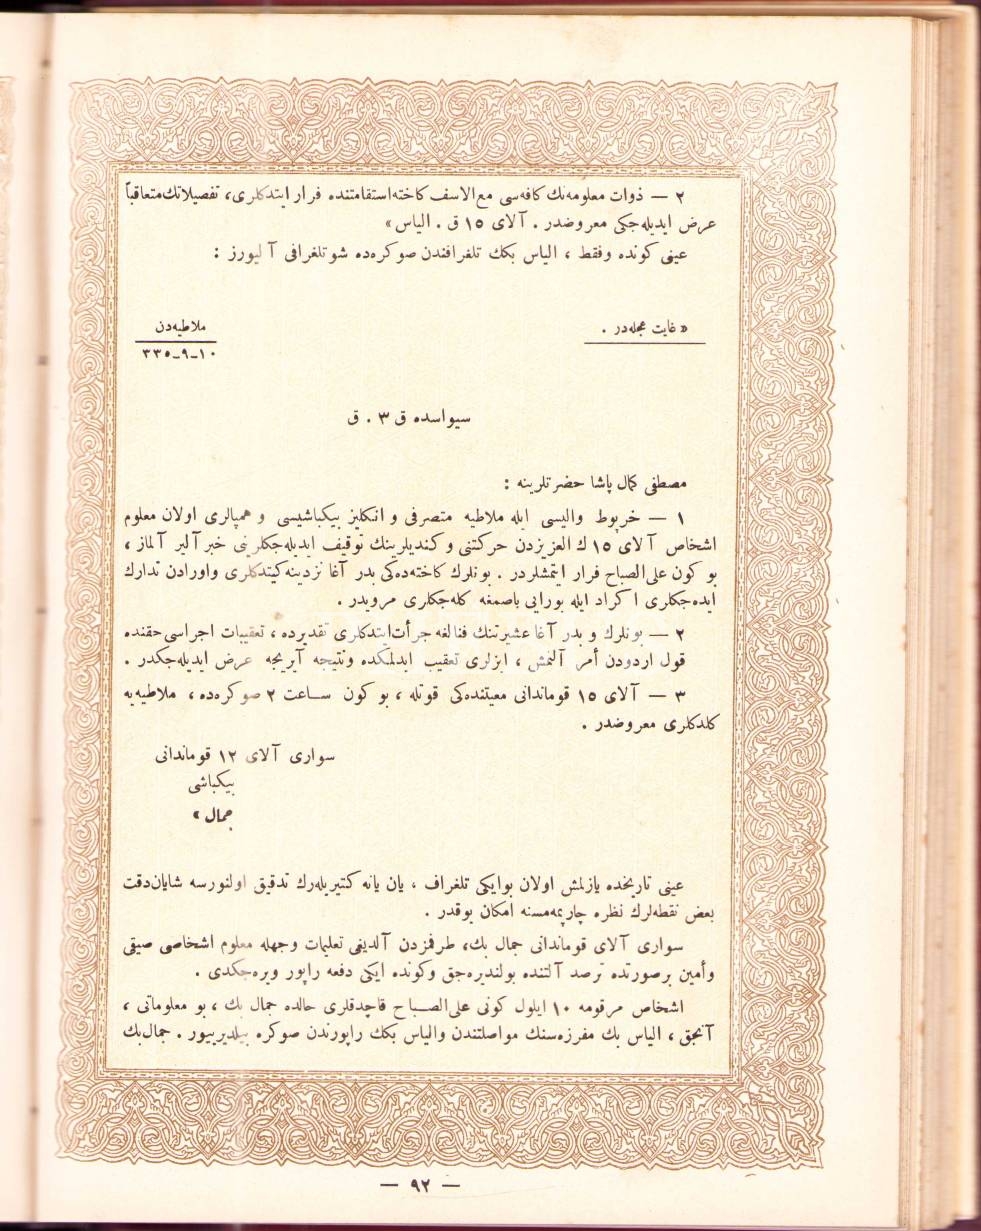 ٢ — ذوات معلومه‌نك كافه‌سی مع‌الاسف كاخته استقامتنده فرار ایتدكلری، تفصیلاتك متعاقباً
عرض ایدیله‌جكی معروضدر . آلای ١٥ ق . الیاس»
عینی كونده وفقط ، الیاس بكك تلغرافندن صوكره‌ده شو تلغرافی آلیورز :
« غایت عجله‌در .
ملاطیه‌دن
١٠-٩-٣٣٥
سیواسده ق ٣ . ق
مصطفی كمال پاشا حضرتلرینه :
١ — خرپوط والیسی ایله ملاطیه متصرفی و انكلیز بیكباشیسی و همپالری اولان معلوم
اشخاص آلای ١٥ ك العزیزدن حركتنی و كندیلرینك توقیف ایدیله‌جكلرینی خبر آلیر آلماز ،
بو كون علی‌الصباح فرار ایتمشلردر . بونلرك كاخته‌ده‌كی بدر آغا نزدینه كیتدكلری واورادن تدارك
ایده‌جكلری اكراد ایله بورایی باصمغه كله‌جكلری مرویدر .
٢ — بونلرك و بدر آغا عشیرتنك فنالغه جرأت ایتدكلری تقدیرده ، تعقیبات اجراسی حقنده
قول اردودن أمر آلنمش ، ایزلری تعقیب ایدلمكده ونتیجه آیریجه عرض ایدیله‌جكدر .
٣ — آلای ١٥ قوماندانی معیتنده‌كی قوتله ، بو كون ساعت ٢ صوكره‌ده ، ملاطیه‌یه
كلدكلری معروضدر .
سواری آلای ١٢ قوماندانی
بیكباشی
جمال »
عینی تاریخده یازلمش اولان بوایكی تلغراف ، یان یانه كتیریله‌رك تدقیق اولنورسه شایان دقت
بعض نقطه‌لرك نظره چارپمه‌مسنه امكان یوقدر .
سواری آلای قوماندانی جمال بك، طرفمزدن آلدیغی تعلیمات وجهله معلوم اشخاصی صیقی
وأمین برصورتده ترصد آلتنده بولندیره‌جق وكونده ایكی دفعه راپور ویره‌جكدی .
اشخاص مرقومه ١٠ ایلول كونی علی‌الصباح قاچدقلری حالده جمال بك ، بو معلوماتی ،
آنجق ، الیاس بك مفرزه‌سنك مواصلتندن والیاس بكك راپورندن صوكره بیلدیرییور . جمال بك
— ٩٢ —